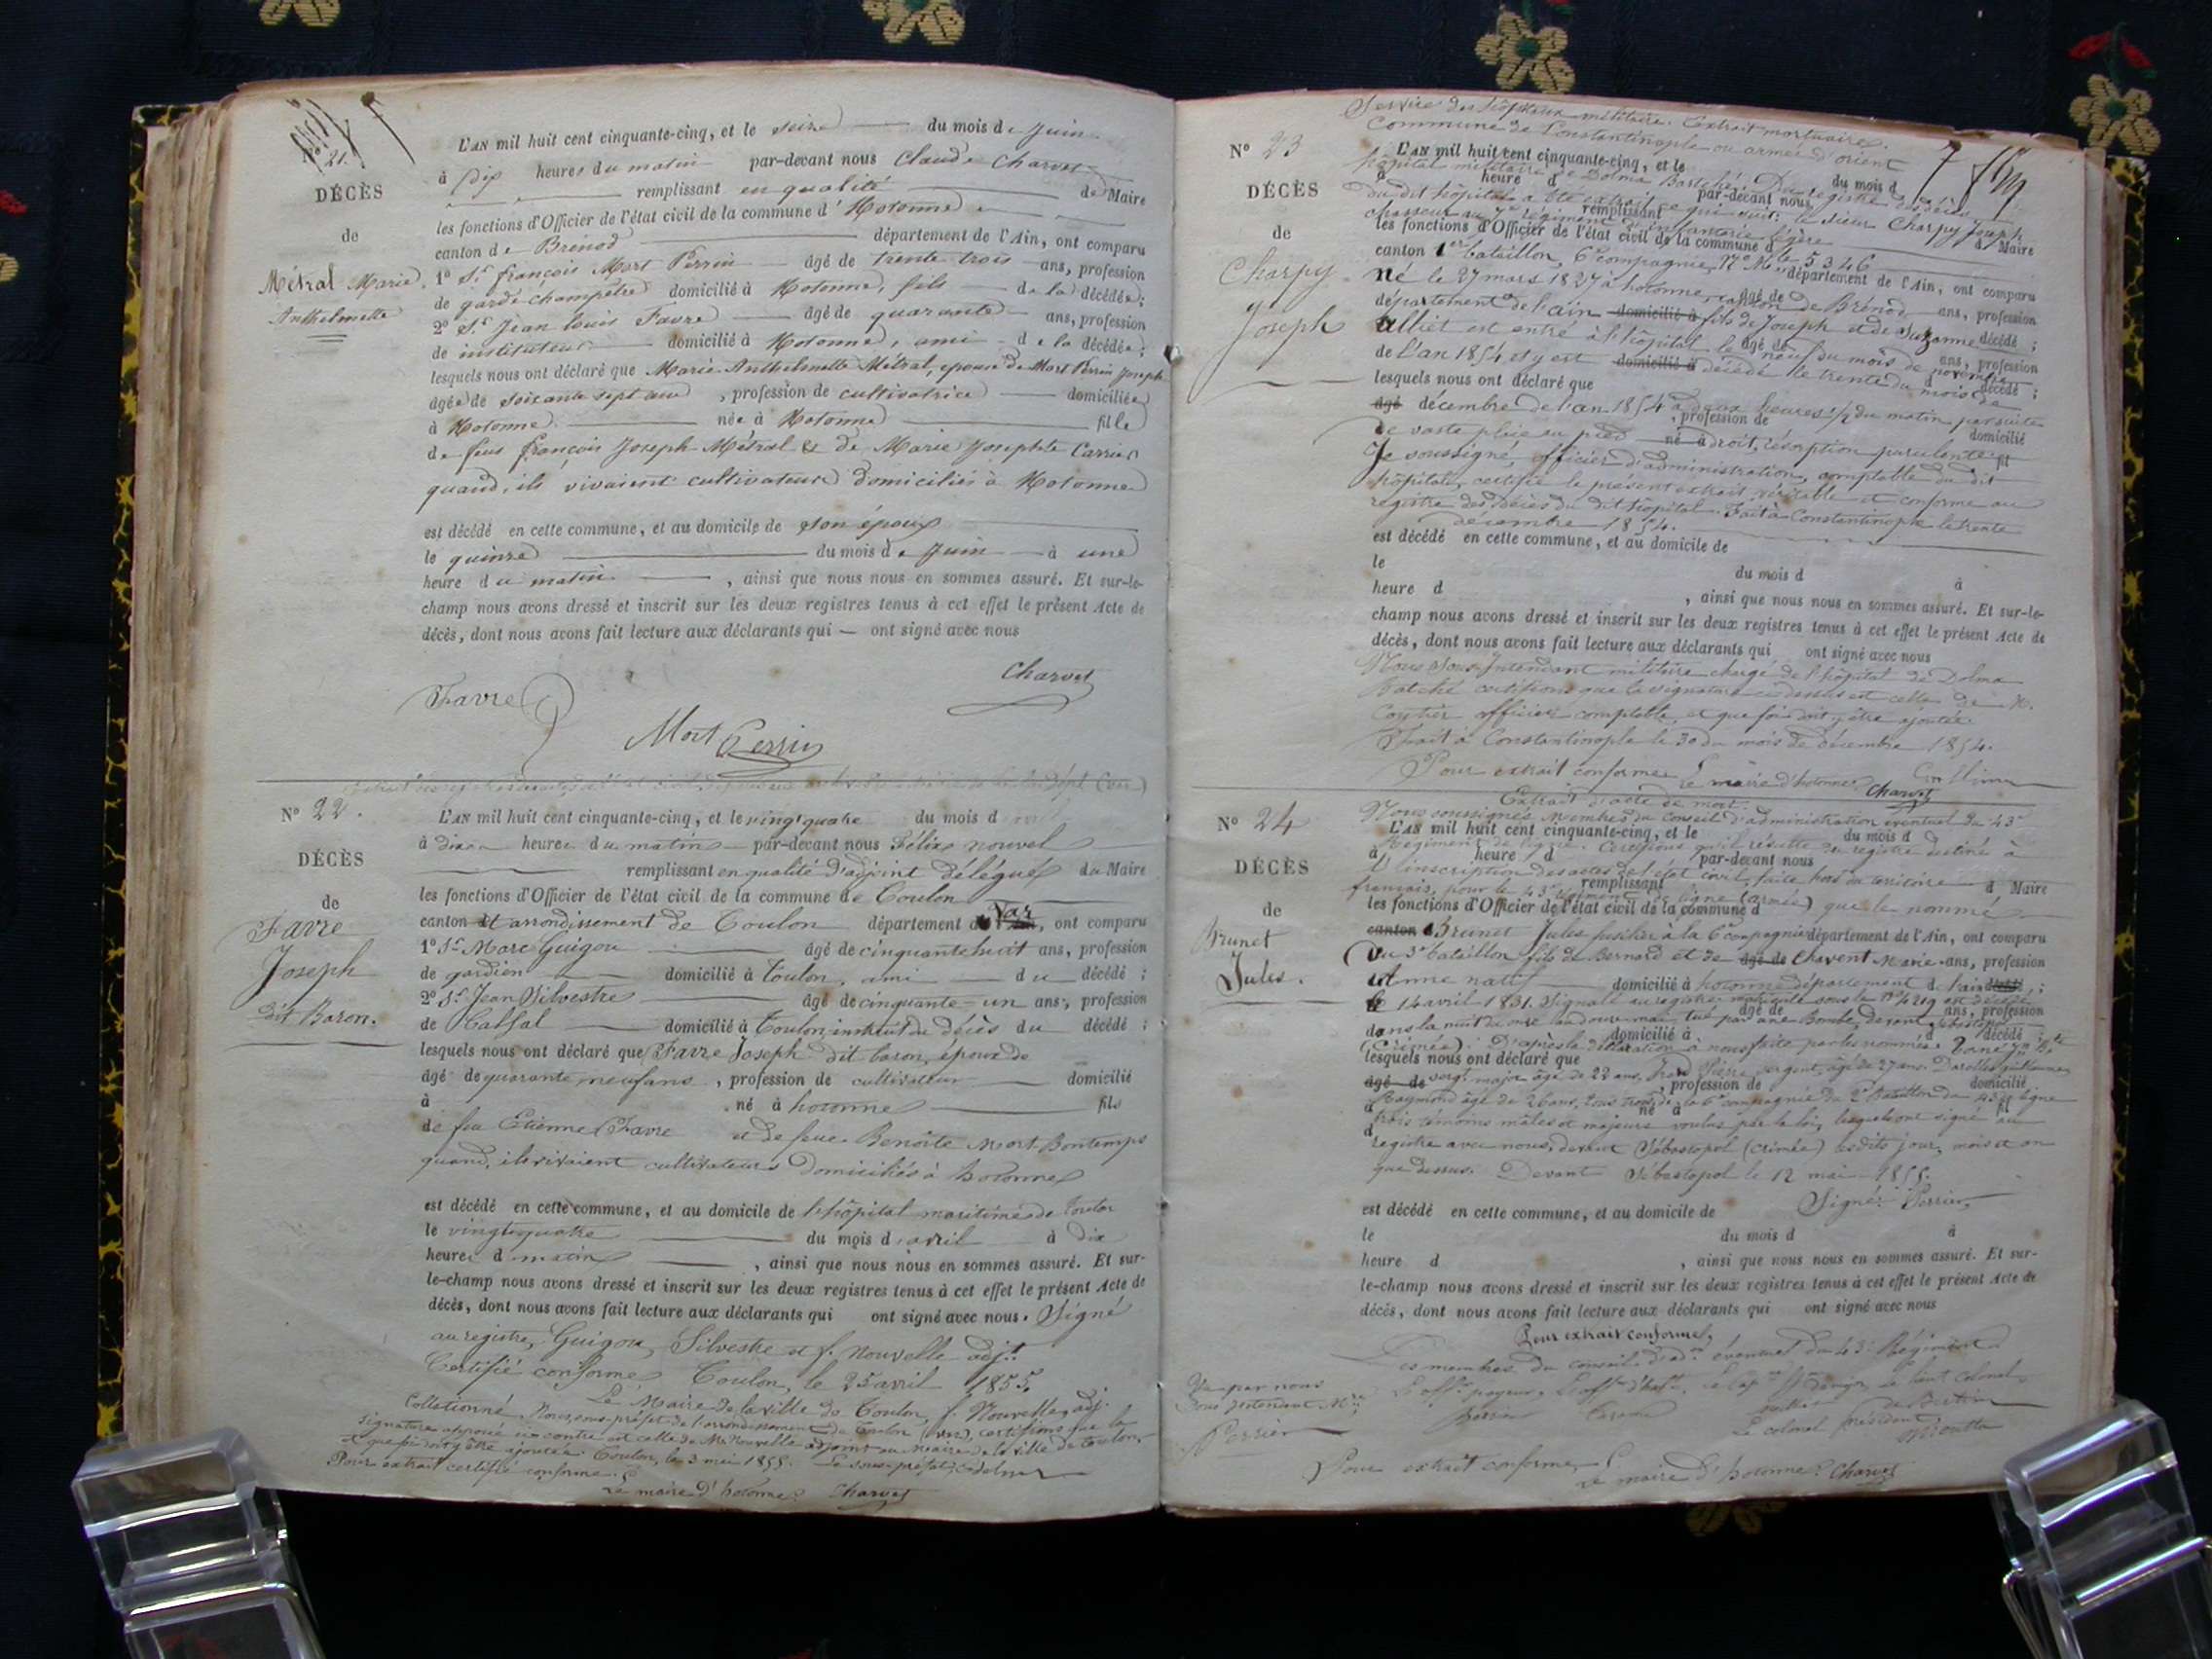 N° 21.
DÉCÈS
de
Métral Marie
Anthelmette
L'AN mil huit cent cinquante-cinq, et le seize du mois de Juin
à dix heures du matin par-devant nous Claude Charvet
remplissant en qualité de Maire
les fonctions d'Officier de l'état civil de la commune d'Hotonne
canton de Brénod département de l'Ain, ont comparu
1° Sr. françois Mort Perrin âgé de trente trois ans, profession
de garde champêtre domicilié à Hotonne, fils de la décédée;
2° Sr. Jean Louis Favre âgé de quarante ans, profession
de instituteur domicilié à Hotonne, ami de la décédée;
lesquels nous ont déclaré que Marie Anthelmette Métral, épouse de Mort Perrin Joseph
âgée de soixante sept ans, profession de cultivatrice domiciliée
à Hotonne née à Hotonne fille
de feus françois Joseph Métral & de Marie Josephte Carrier
quand ils vivaient cultivateurs domiciliés à Hotonne
est décédé en cette commune, et au domicile de son époux
le quinze du mois de Juin à une
heure du matin, ainsi que nous nous en sommes assuré. Et sur-le-
champ nous avons dressé et inscrit sur les deux registres tenus à cet effet le présent Acte de
décès, dont nous avons fait lecture aux déclarants qui — ont signé avec nous
Charvet
Favre
Mort Perrin
N° 22.
DÉCÈS
de
Favre
Joseph
dit Baron.
L'AN mil huit cent cinquante-cinq, et le vingt quatre du mois d
à dix heures du matin par-devant nous Félix nouvel
remplissant en qualité d'adjoint délégué du Maire
les fonctions d'Officier de l'état civil de la commune de Toulon
canton et arrondissement de Toulon département du Var, ont comparu
1° Sr Marc Guigou âgé de cinquante huit ans, profession
de gardien domicilié à Toulon, ami du décédé;
2° Sr Jean Silvestre âgé de cinquante-un ans, profession
de domicilié à Toulon, instruit du décès du décédé;
lesquels nous ont déclaré que Favre Joseph dit baron, époux de
âgé de quarante neuf ans, profession de cultivateur domicilié
à né à hotonne fils
de feu Etienne Favre et de feue Benoite Mort-Bontemps
quand, ils vivaient cultivateurs domiciliés à hotonne
est décédé en cette commune, et au domicile de l'hôpital maritime de Toulon
le vingt quatre du mois d'avril à dix
heures d matin, ainsi que nous nous en sommes assuré. Et sur-
le-champ nous avons dressé et inscrit sur les deux registres tenus à cet effet le présent Acte de
décès, dont nous avons fait lecture aux déclarants qui ont signé avec nous. Signé
au registre, Guigou, Silvestre et f. Nouvelle adjt.
Certifié conforme Toulon, le 25 avril 1855,
Le Maire de la ville de Toulon, f. Nouvelle, adj.
Collationné. Nous, sous-préfet de l'arrondissement de Toulon (var), certifions que la
signature apposée ci-contre est celle de Mr Nouvelle adjoint au maire de la ville de Toulon,
et que foi doit y être ajoutée. Toulon, le 3 mai 1855. Le sous-préfet,
Pour extrait certifié conforme.
Le maire d'hotonne. Charvet
Service des hôpitaux militaires. Extrait mortuaire.
Commune de Constantinople ou armée d'orient
N° 23
DÉCÈS
de
Charpy
Joseph
L'AN mil huit cent cinquante-cinq, et le du mois d
hôpital militaire de Dolma Batché. Du registre des décès
à heure d par-devant nous
du dit hôpital a été extrait ce qui suit: le sieur Charpy Joseph
remplissant d Maire
chasseur au 7e régiment d'infanterie légère
les fonctions d'Officier de l'état civil de la commune d
canton 1er bataillon, 6e compagnie, No Mle 5346 département de l'Ain, ont comparu
né le 27 mars 1827 à hotonne, canton de Brénod âgé de ans, profession
département de l'ain domicilié à fils de Joseph et de Suzanne décédé;
alliet est entré à l'hôpital le neuf du mois de novembre âgé de ans, profession
de l'an 1854 et y est domicilié à décédé le trente du mois de d décédé;
lesquels nous ont déclaré que
âgé décembre de l'an 1854 à deux heures 1/2 du matin par suite, profession de domicilié
de vaste plaie au pied né à droit, résorption purulente fil
Je soussigné, officier d'administration, comptable du dit
hôpital, certifie le présent extrait véritable et conforme au
registre des décès du dit hôpital. Fait à Constantinople le trente
décembre 1854.
est décédé en cette commune, et au domicile de
le du mois d à
heure d, ainsi que nous nous en sommes assuré. Et sur-le-
champ nous avons dressé et inscrit sur les deux registres tenus à cet effet le présent Acte de
décès, dont nous avons fait lecture aux déclarants qui ont signé avec nous
Nous Sous-Intendant militaire chargé de l'hôpital de Dolma
Batché certifions que la signature ci-dessus est celle de M.
officier comptable, et que foi doit y être ajoutée.
Fait à Constantinople le 30 du mois de décembre 1854.
Pour extrait conforme, Le maire d'hotonne. Charvet
Extrait d'acte de mort.
N° 24
DÉCÈS
de
Brunet
Jules.
Nous soussignés Membres du Conseil d'administration éventuel du 43e
L'AN mil huit cent cinquante-cinq, et le du mois d
Régiment de ligne. Certifions qu'il résulte du registre destiné à
à heure d par-devant nous
l'inscription des actes de l'état civil, faite hors du territoire
remplissant d Maire
français, pour le 43e régiment de ligne (armée) que le nommé
les fonctions d'Officier de l'état civil de la commune d
canton Brunet Jules fusilier à la 6e compagnie département de l'Ain, ont comparu
du 3e bataillon fils de Bernard et de âgé de Chavent Marie ans, profession
Anne natif domicilié à hotonne département de l'ain;
le 14 avril 1831. Signalé au registre matricule sous le no est décédé
âgé de ans, profession
dans la nuit du onze au douze mai, tué par une Bombe, devant Sébastopol
domicilié à d décédé
(Crimée). D'après la déclaration à nous faite par les nommés
lesquels nous ont déclaré que
âgé de sergt major âgé de 22 ans, Pierre sergent, âgé de 27 ans
, profession de domicilié
Raymond âgé de 26 ans, tous trois de la 6e compagnie du 2e Bataillon du 43e ligne
à né à fil
trois témoins mâles et majeurs voulus par la loi, lesquels ont signé au
d
registre avec nous, devant Sébastopol (crimée) les dits jour, mois et an
que dessus. Devant Sébastopol le 12 mai 1855.
Signé: Perrier,
est décédé en cette commune, et au domicile de
le du mois d à
heure d, ainsi que nous nous en sommes assuré. Et sur-
le-champ nous avons dressé et inscrit sur les deux registres tenus à cet effet le présent Acte de
décès, dont nous avons fait lecture aux déclarants qui ont signé avec nous
Pour extrait conforme,
Les membres du conseil d'adon éventuel du 43e Régiment
Vu par nous
Sous Intendant Mre
Perrier
L'offr payeur, L'offr d'habt, Le lieut colonel,
Le colonel Président
Pour extrait conforme,
Le maire d'hotonne. Charvet